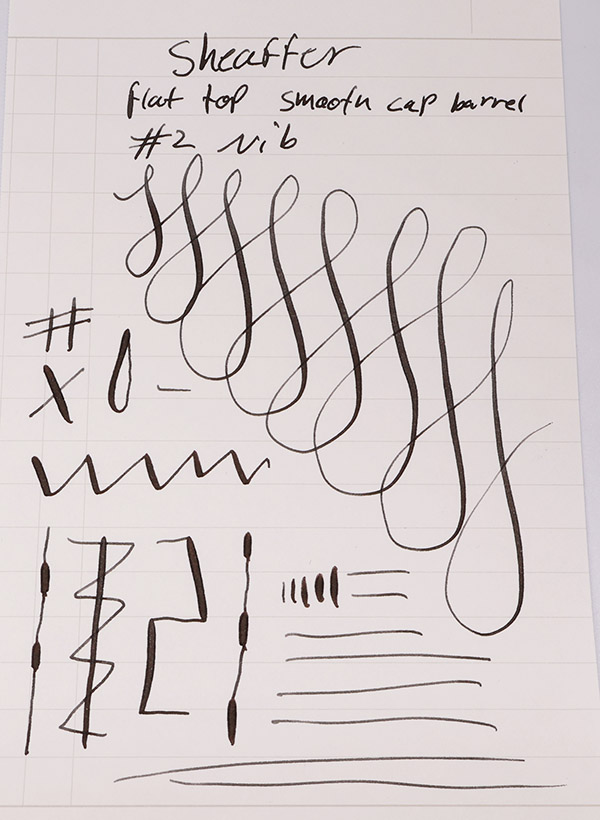 Sheaffer
flat top smooth cap barrel
#2 nib